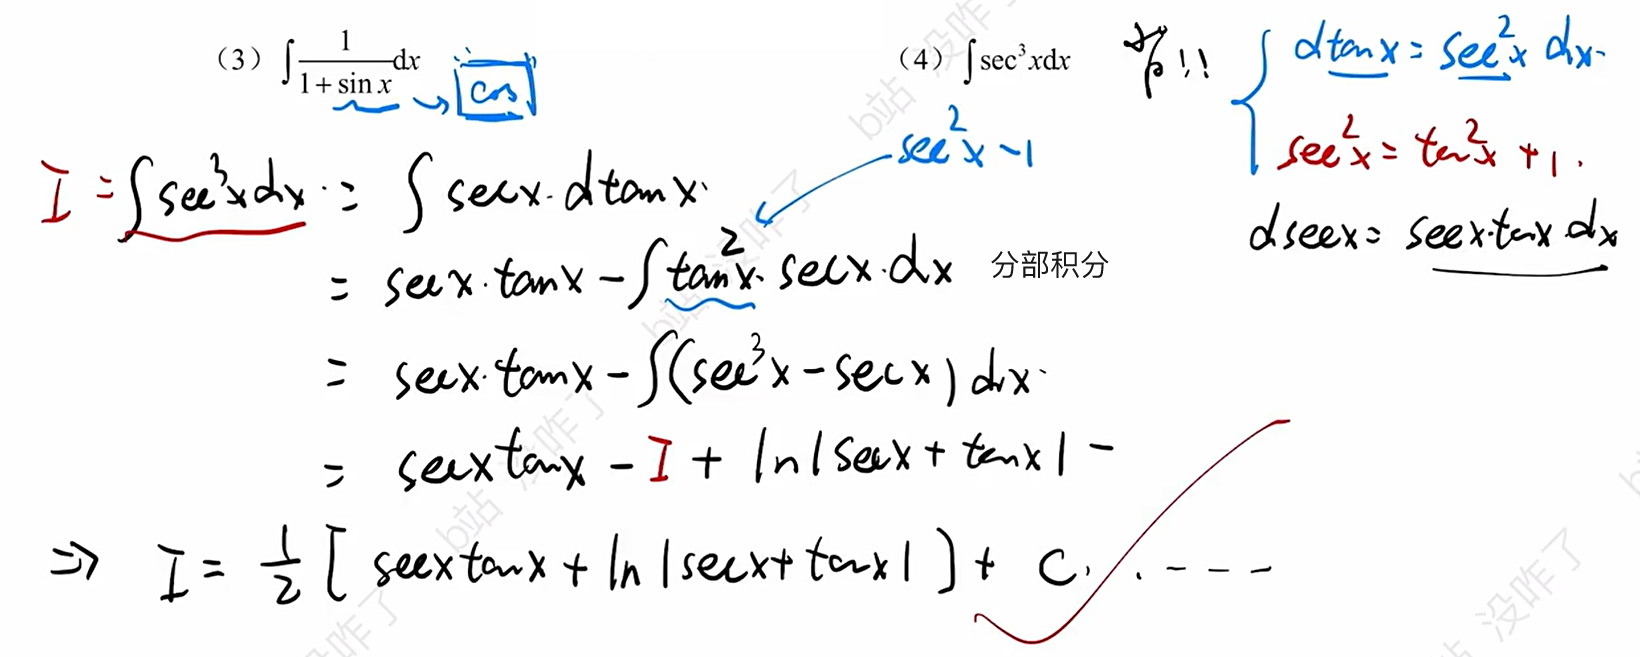 (3) ∫ 1/(1+sin x) dx → cos
(4) ∫ sec³xdx !!
dtanx = sec²x dx.
sec²x = tan²x + 1.
dsecx = secx·tanx dx
sec²x - 1
I = ∫ sec³x dx = ∫ secx·dtanx
= secx·tanx - ∫ tan²x·secx·dx 分部积分
= secx·tanx - ∫(sec³x - secx) dx
= secxtanx - I + ln|secx + tanx| -
⇒ I = 1/2 [secxtanx + ln|secx + tanx|] + C. . - - -
b站 没咋了
b站 没咋了
b站 没咋了
没咋了
b站 没咋了
b站